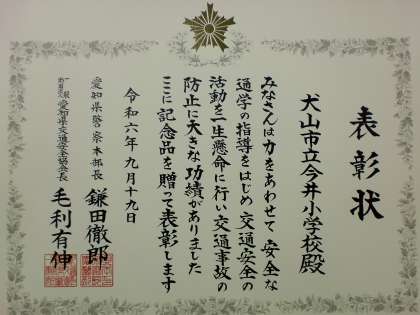 表彰状
犬山市立今井小学校殿
みなさんは力をあわせて 安全な
通学の指導をはじめ 交通安全の
活動を一生懸命に行い 交通事故の
防止に大きな功績がありました
ここに記念品を贈って表彰します
令和六年九月十九日
愛知県警察本部長 鎌田徹郎
愛知県交通安全協会長 毛利有伸